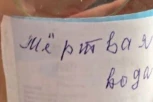 мёртвая
вода